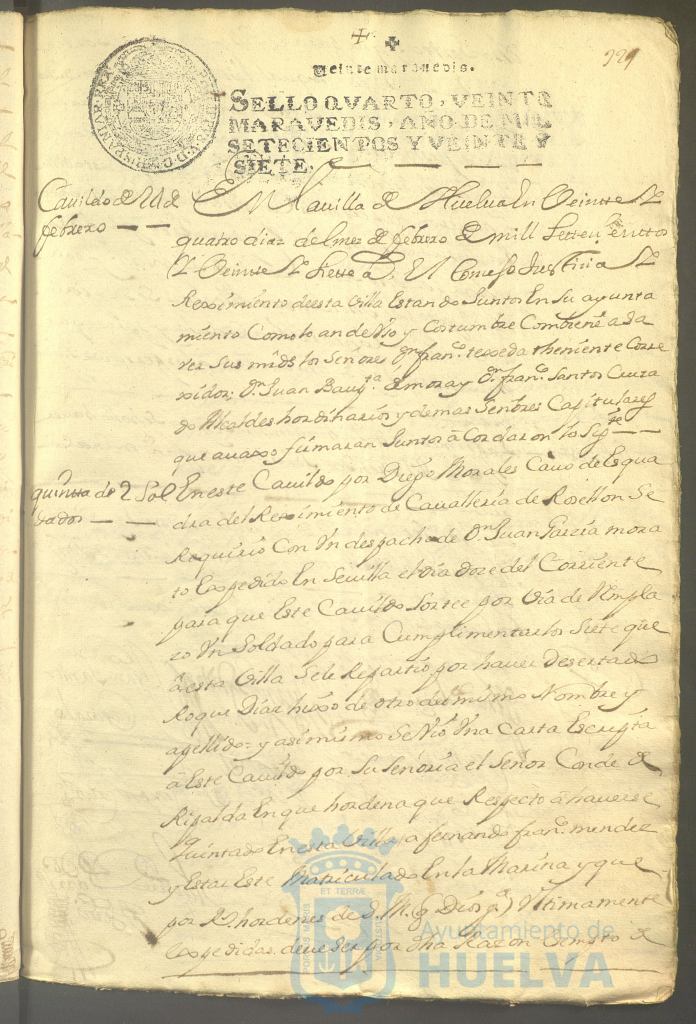 229
Veinte maravedis.
SELLO QVARTO, VEINTE
MARAVEDIS, AÑO DE MIL
SETECIENTOS Y VEINTE Y
SIETE.
HISPANIAR. REX
Cavildo de 24 de
febrero
En la villa de Huelva En Veinte Y
quatro dias del mes de febrero de mill setecientos
Y Veinte Y siete as. El Consejo Justicia Y
Reximiento de esta Villa Estando Juntos En su ayunta
miento Como lo an de Uso y Costumbre Combiene a sa
ver sus mrds los Señores Dn. franco. texeda theniente Corre
xidor; Dn. Juan Bauta. de mora y Dn. franco. Santos Cruza
do Alcaldes hordinarios y demas Señores Capitulares
que avaxo firmaran Juntos acordaron lo Sigte
quinta de 2 Sol
dados
En este Cavildo por Diego Morales Cavo de Esqua
dra del Reximiento de Cavalleria de Rosellon Se
Requirio Con Un despacho de Dn. Juan Garzia mora
to Expedido En Sevilla el dia doze del Corriente
para que Este Cavildo Sortee por Via de Rempla
zo Un Soldado para Cumplimentar los Siete que
a esta Villa Se le Repartio por haver desertado
Roque Diaz hixo de otro del mismo Nombre y
apellido= y asimismo Se Vio Una Carta Escripta
a Este Cavildo por Su Señoria el Señor Conde de
Ripalda En que hordena que Respecto a haverse
quintado En esta Villa a fernando franco. mendez
y Estar Este Matriculado En la Marina y que
por Rs. hordenes de S. M. (q Dios ge) Ultimamente
Expedidas deve Ser por dha Razon Esempto de
PORTUS MARIS
ET TERRÆ
CUSTODIA
Ayuntamiento de
HUELVA